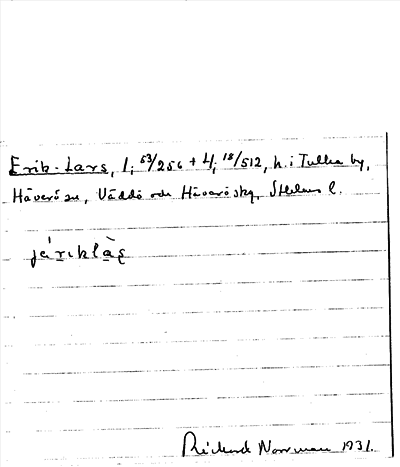 Erik-Lars, 1; 53/256 + 4; 18/512, h. i Tulka by,
Häverö sn, Väddö och Häverö skg, Sthlms l.
järıklàs
Rickard Norrman 1931.